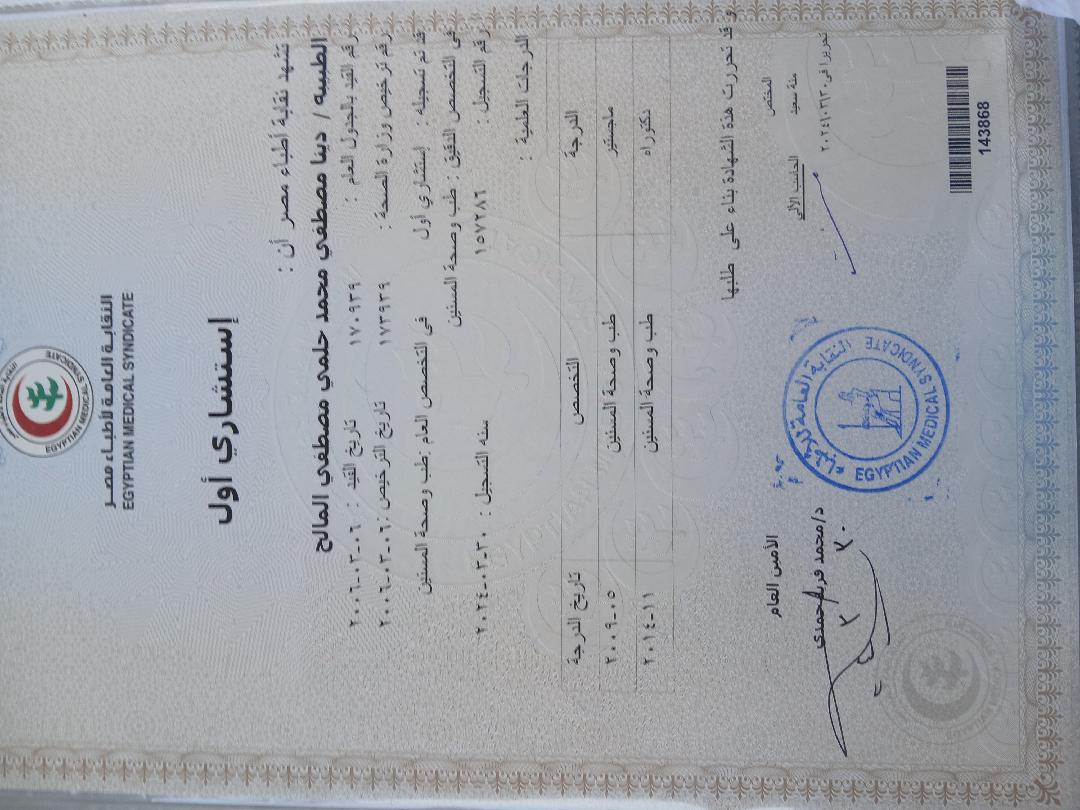 النقابة العامة لأطباء مصر
EGYPTIAN MEDICAL SYNDICATE
إستشاري أول
تشهد نقابة أطباء مصر أن :
الطبيبه / دينا مصطفي محمد حلمي مصطفي المالح
رقم القيد بالجدول العام : ١٧٠٩٣٩ تاريخ القيد : ٠٦-٠٣-٢٠٠٦
رقم ترخيص وزارة الصحة : ١٧٣٩٣٩ تاريخ الترخيص : ٠٦-٠٣-٢٠٠٦
قد تم تسجيله : إستشاري أول فى التخصص العام : طب وصحة المسنين
فى التخصص الدقيق : طب وصحة المسنين
رقم التسجيل : ١٥٧٢٨٦ سنه التسجيل : ٣٠-٠٣-٢٠٢٤
الدرجات العلمية :
الدرجة التخصص تاريخ الدرجة
ماجستير طب وصحة المسنين ٠٥-٢٠٠٩
دكتوراه طب وصحة المسنين ١١-٢٠١٤
و قد تحررت هذة الشهادة بناء على طلبها
المختص الحاسب الآلي الأمين العام
منة سعيد د/محمد فريد حمدي
تحريرا في ٢٠٢٤/٠٣/٣٠
النقابة العامة للأطباء
EGYPTIAN MEDICAL SYNDICATE
143868